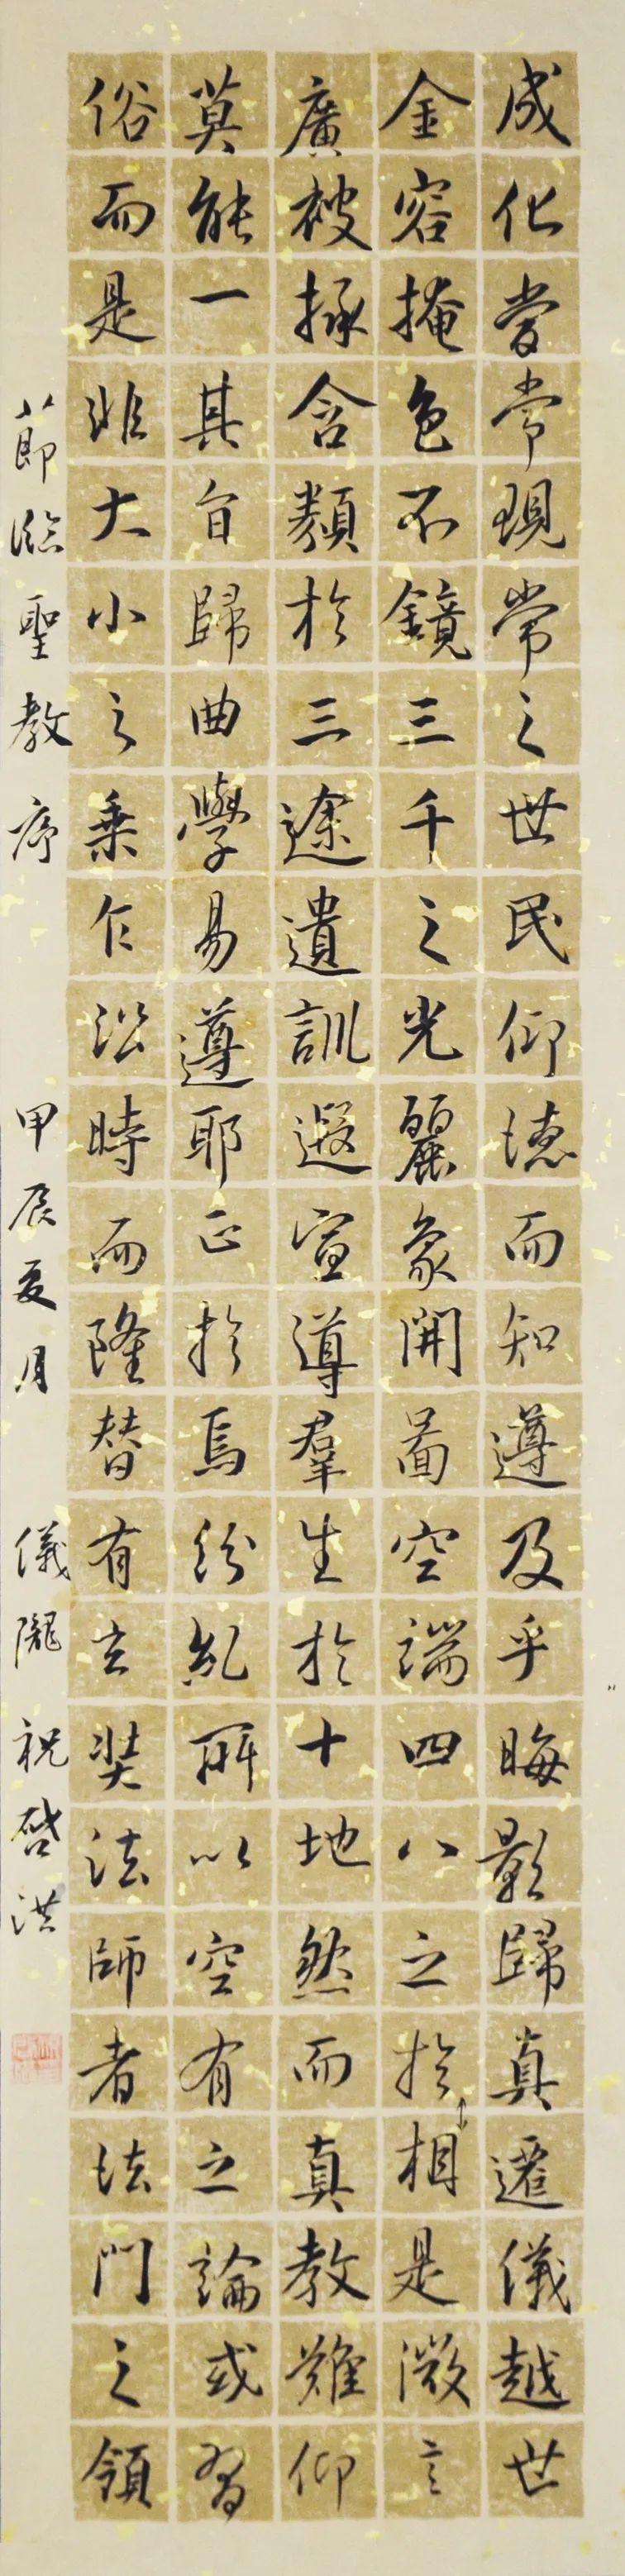 成化當常現常之世民仰德而知遵及乎晦影歸真遷儀越世
金容掩色不鏡三千之光麗象開圖空端四八之於相是微言
廣被拯含類於三途遺訓遐宣導羣生於十地然而真教難仰
莫能一其旨歸曲學易遵耶正於焉紛糺所以空有之論或習
俗而是非大小之乘乍㳂時而隆替有玄奘法師者法門之領
節臨聖教序 甲辰夏月 儀隴 祝啓洪